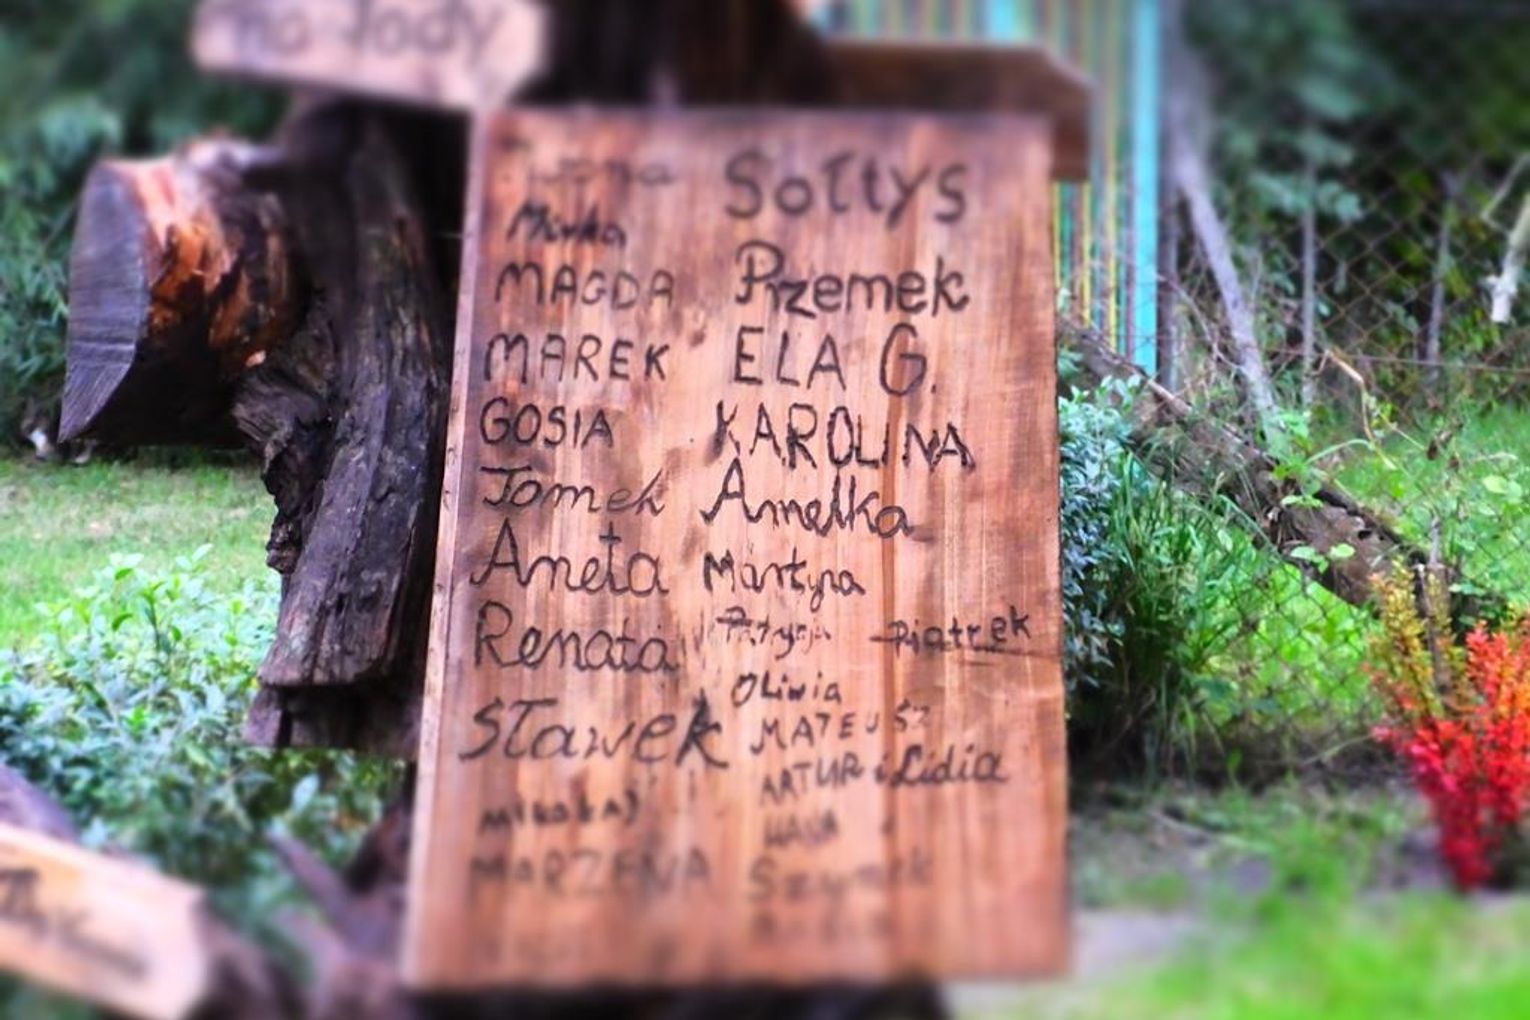 na lody
Sołtys
Mirka
MAGDA
Przemek
MAREK
ELA G.
GOSIA
KAROLINA
Tomek
Amelka
Aneta
Martyna
Renata
Patrycja Piątrek
Oliwia
Sławek
MATEUSZ
ARTUR i Lidia
Mikołaj
HANIA
MARZENA
Szymek